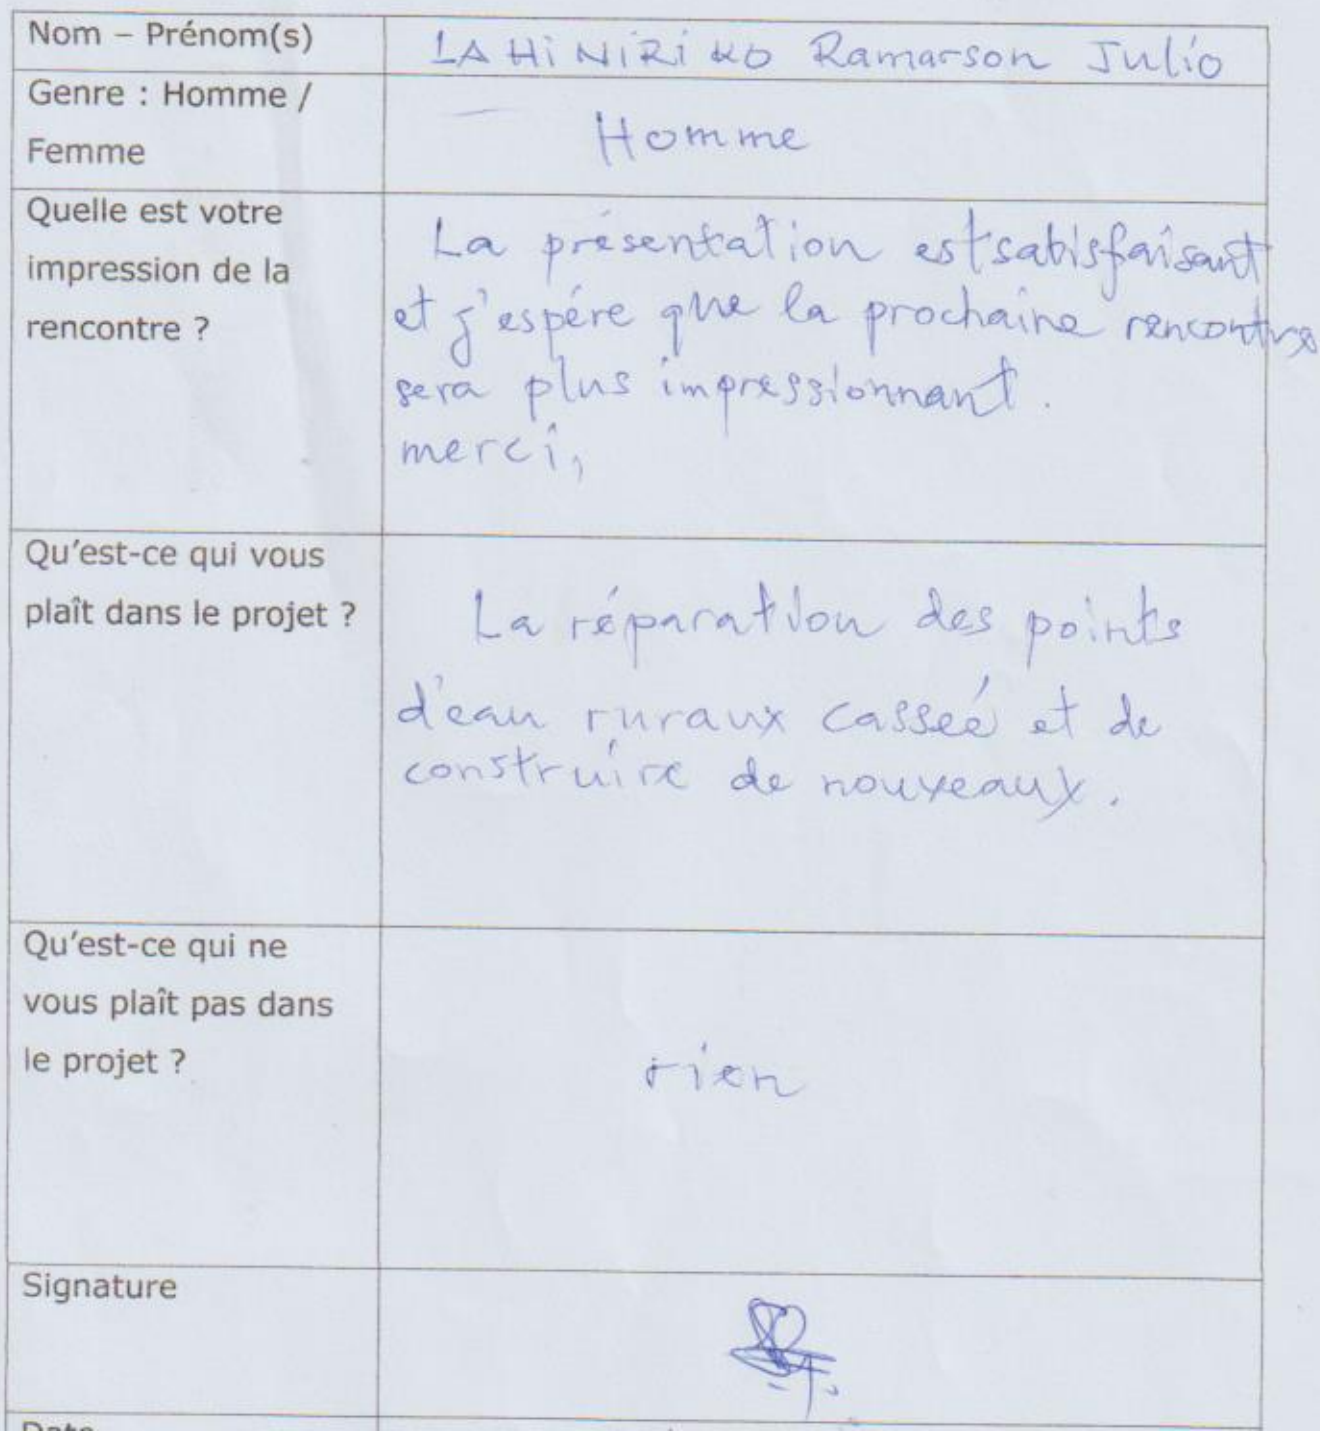 Nom – Prénom(s)
LAHiNiRiKO Ramarson Julio
Genre : Homme /
Femme
Homme
Quelle est votre
impression de la
rencontre ?
La présentation est satisfaisant
et j'espére que la prochaine rencontre
sera plus impressionnant.
merci,
Qu'est-ce qui vous
plaît dans le projet ?
La réparation des points
d'eau ruraux casseé et de
construire de nouveaux.
Qu'est-ce qui ne
vous plaît pas dans
le projet ?
rien
Signature
Date